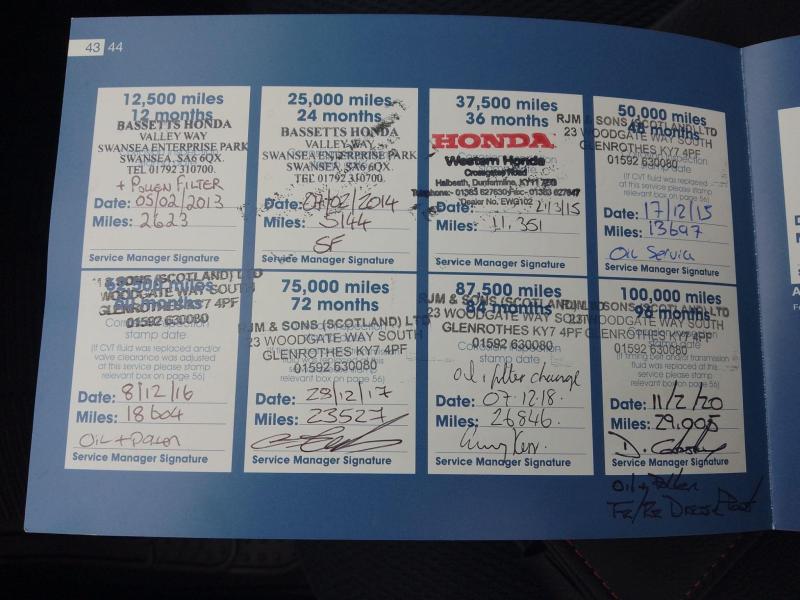 43 44
12,500 miles
12 months
BASSETTS HONDA
VALLEY WAY
SWANSEA ENTERPRISE PARK
SWANSEA, SA6 6QX.
TEL 01792 310700.
+ POLLEN FILTER
Date: 05/02/2013
Miles: 2623
Service Manager Signature
25,000 miles
24 months
BASSETTS HONDA
VALLEY WAY
SWANSEA ENTERPRISE PARK
SWANSEA, SA6 6QX.
TEL 01792 310700.
Date: 07/02/2014
Miles: 5144
SF
Service Manager Signature
37,500 miles
36 months
HONDA
Western Honda
Crossgates Road
Halbeath, Dunfermline, KY11 7EG
Telephone: 01383 627630 Fax: 01383 627647
Dealer No. EWG102
Date: 2/3/15
Miles: 11,351
Service Manager Signature
50,000 miles
48 months
RJM & SONS (SCOTLAND) LTD
23 WOODGATE WAY SOUTH
GLENROTHES KY7 4PF
01592 630080
(If CVT fluid was replaced
at this service please stamp
relevant box on page 56)
Date: 17/12/15
Miles: 13697
Oil Service
Service Manager Signature
62,500 miles
& SONS (SCOTLAND) LTD
WOODGATE WAY SOUTH
GLENROTHES KY7 4PF
01592 630080
stamp date
(If CVT fluid was replaced and/or
valve clearance was adjusted
at this service please stamp
relevant box on page 56)
Date: 8/12/16
Miles: 18604
Oil + Pollen
Service Manager Signature
75,000 miles
72 months
RJM & SONS (SCOTLAND) LTD
23 WOODGATE WAY SOUTH
GLENROTHES KY7 4PF
01592 630080
(If CVT fluid was replaced
at this service please stamp
relevant box on page 56)
Date: 28/12/17
Miles: 23527
Service Manager Signature
87,500 miles
84 months
RJM & SONS (SCOTLAND) LTD
23 WOODGATE WAY SOUTH
GLENROTHES KY7 4PF
01592 630080
stamp date
oil & filter change
Date: 07.12.18.
Miles: 26846.
Service Manager Signature
100,000 miles
96 months
SONS (SCOTLAND) LTD
WOODGATE WAY SOUTH
GLENROTHES KY7 4PF
01592 630080
(If timing belt and/or transmission
fluid was replaced
at this service please stamp
relevant box on page 56)
Date: 11/2/20
Miles: 29,005
Service Manager Signature
Oil + Pollen